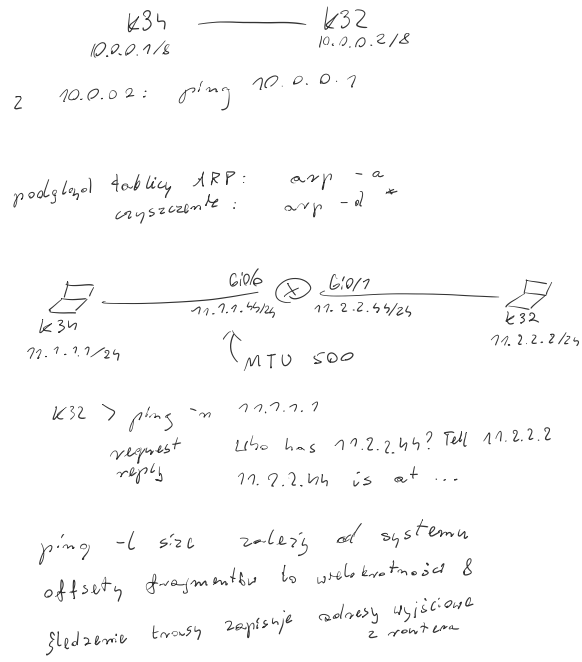 K34 K32
10.0.0.1/8 10.0.0.2/8
z 10.0.0.2: ping 10.0.0.1
podgląd tablicy ARP: arp -a
czyszczenie: arp -d *
Gi0/0 Gi0/1
11.1.1.44/24 11.2.2.44/24
K34 K32
11.1.1.1/24 11.2.2.2/24
MTU 500
K32 > ping -n 11.1.1.1
request Who has 11.2.2.44? Tell 11.2.2.2
reply 11.2.2.44 is at ...
ping -l size zależy od systemu
offsety fragmentów to wielokrotności 8
śledzenie trasy zapisuje adresy wyjściowe
z routera